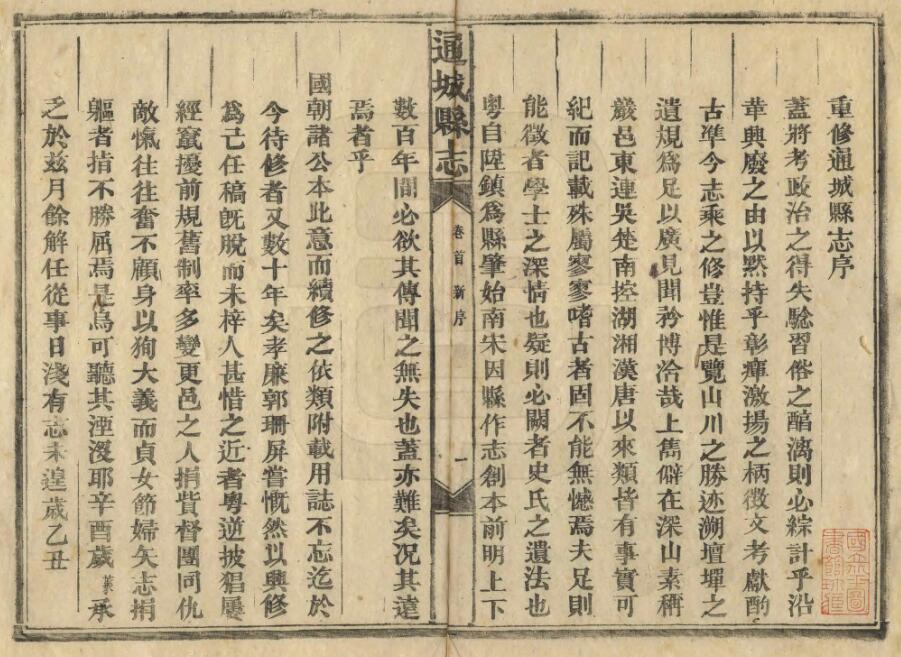 重修通城縣志序
蓋將考政治之得失騐習俗之醕漓則必綜計乎沿
革興廢之由以黙持乎彰癉激揚之柄徵文考獻酌
古凖今志乘之修豈惟是覽山川之勝迹溯壇墠之
遺規爲足以廣見聞矜博洽哉上雋僻在深山素稱
巖邑東連吳楚南控湖湘漢唐以來類皆有事實可
紀而記載殊屬寥寥嗜古者固不能無憾焉夫足則
能徵者學士之深情也疑則必闕者史氏之遺法也
粵自陞鎮爲縣肇始南宋因縣作志創本前明上下
通城縣志
卷首 新序
一
數百年間必欲其傳聞之無失也蓋亦難矣况其遠
焉者乎
國朝諸公本此意而續修之依類附載用誌不忘迄於
今待修者又數十年矣孝廉郭珊屏嘗慨然以興修
爲己任稿旣脫而未梓人甚惜之近者粵逆披猖屢
經竄擾前規舊制率多變更邑之人捐貲督團同仇
敵愾往往奮不顧身以狥大義而貞女節婦矢志捐
軀者指不勝屈焉是烏可聽其湮沒耶辛酉歲 承
乏於兹月餘解任從事日淺有志未遑歲乙丑